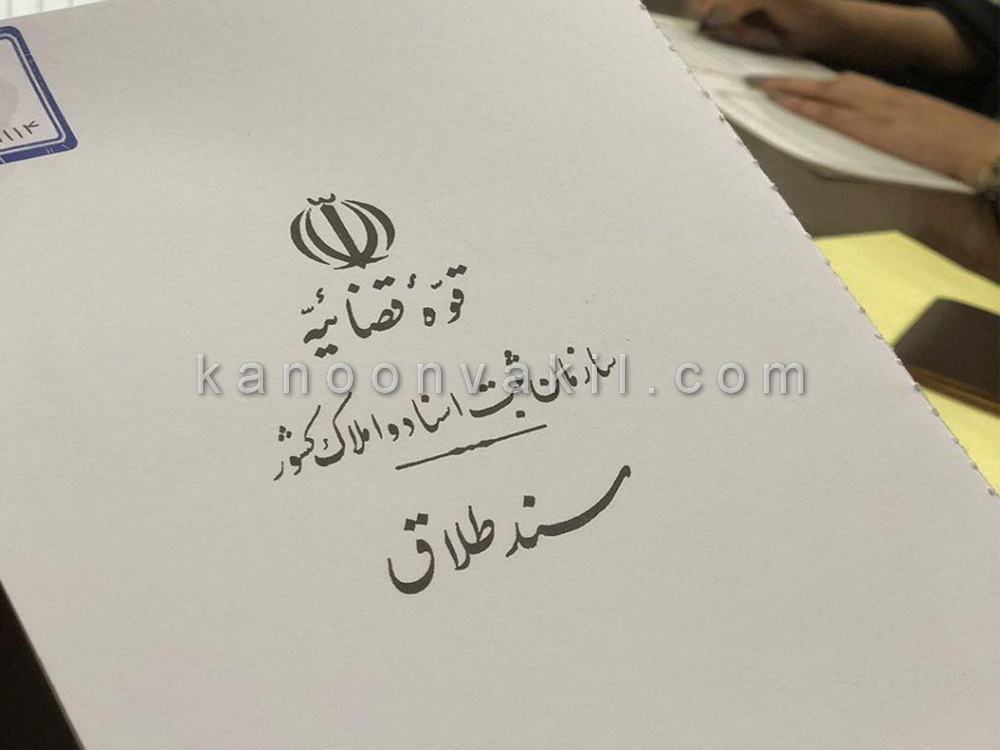 ۱۱۴
قوّهٔ قضائیّه
سازمان ثبت اسناد و املاک کشور
سند طلاق
kanoonvakil.com